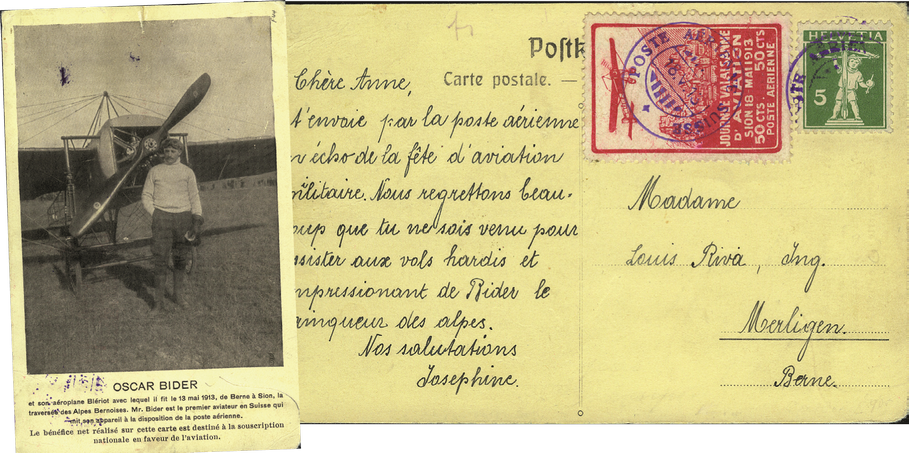 OSCAR BIDER
et son aéroplane Blériot avec lequel il fit le 13 mai 1913, de Berne à Sion, la
traversée des Alpes Bernoises. Mr. Bider est le premier aviateur en Suisse qui
mit son appareil à la disposition de la poste aérienne.
Le bénéfice net réalisé sur cette carte est destiné à la souscription
nationale en faveur de l'aviation.
Postk
Carte postale. —
Chère Anne,
t'envoie par la poste aérienne
écho de la fête d'aviation
militaire. Nous regrettons beau-
que tu ne sois venu pour
assister aux vols hardis et
impressionant de Bider le
vainqueur des alpes.
Nos salutations
Josephine.
JOURNÉE VALAISANNE
D'AVIATION
SION 18 MAI 1913
50 CTS 50 CTS
POSTE AÉRIENNE
POSTE AÉR
HELVETIA
5
Madame
Louis Riva, Ing.
Merligen.
Berne.